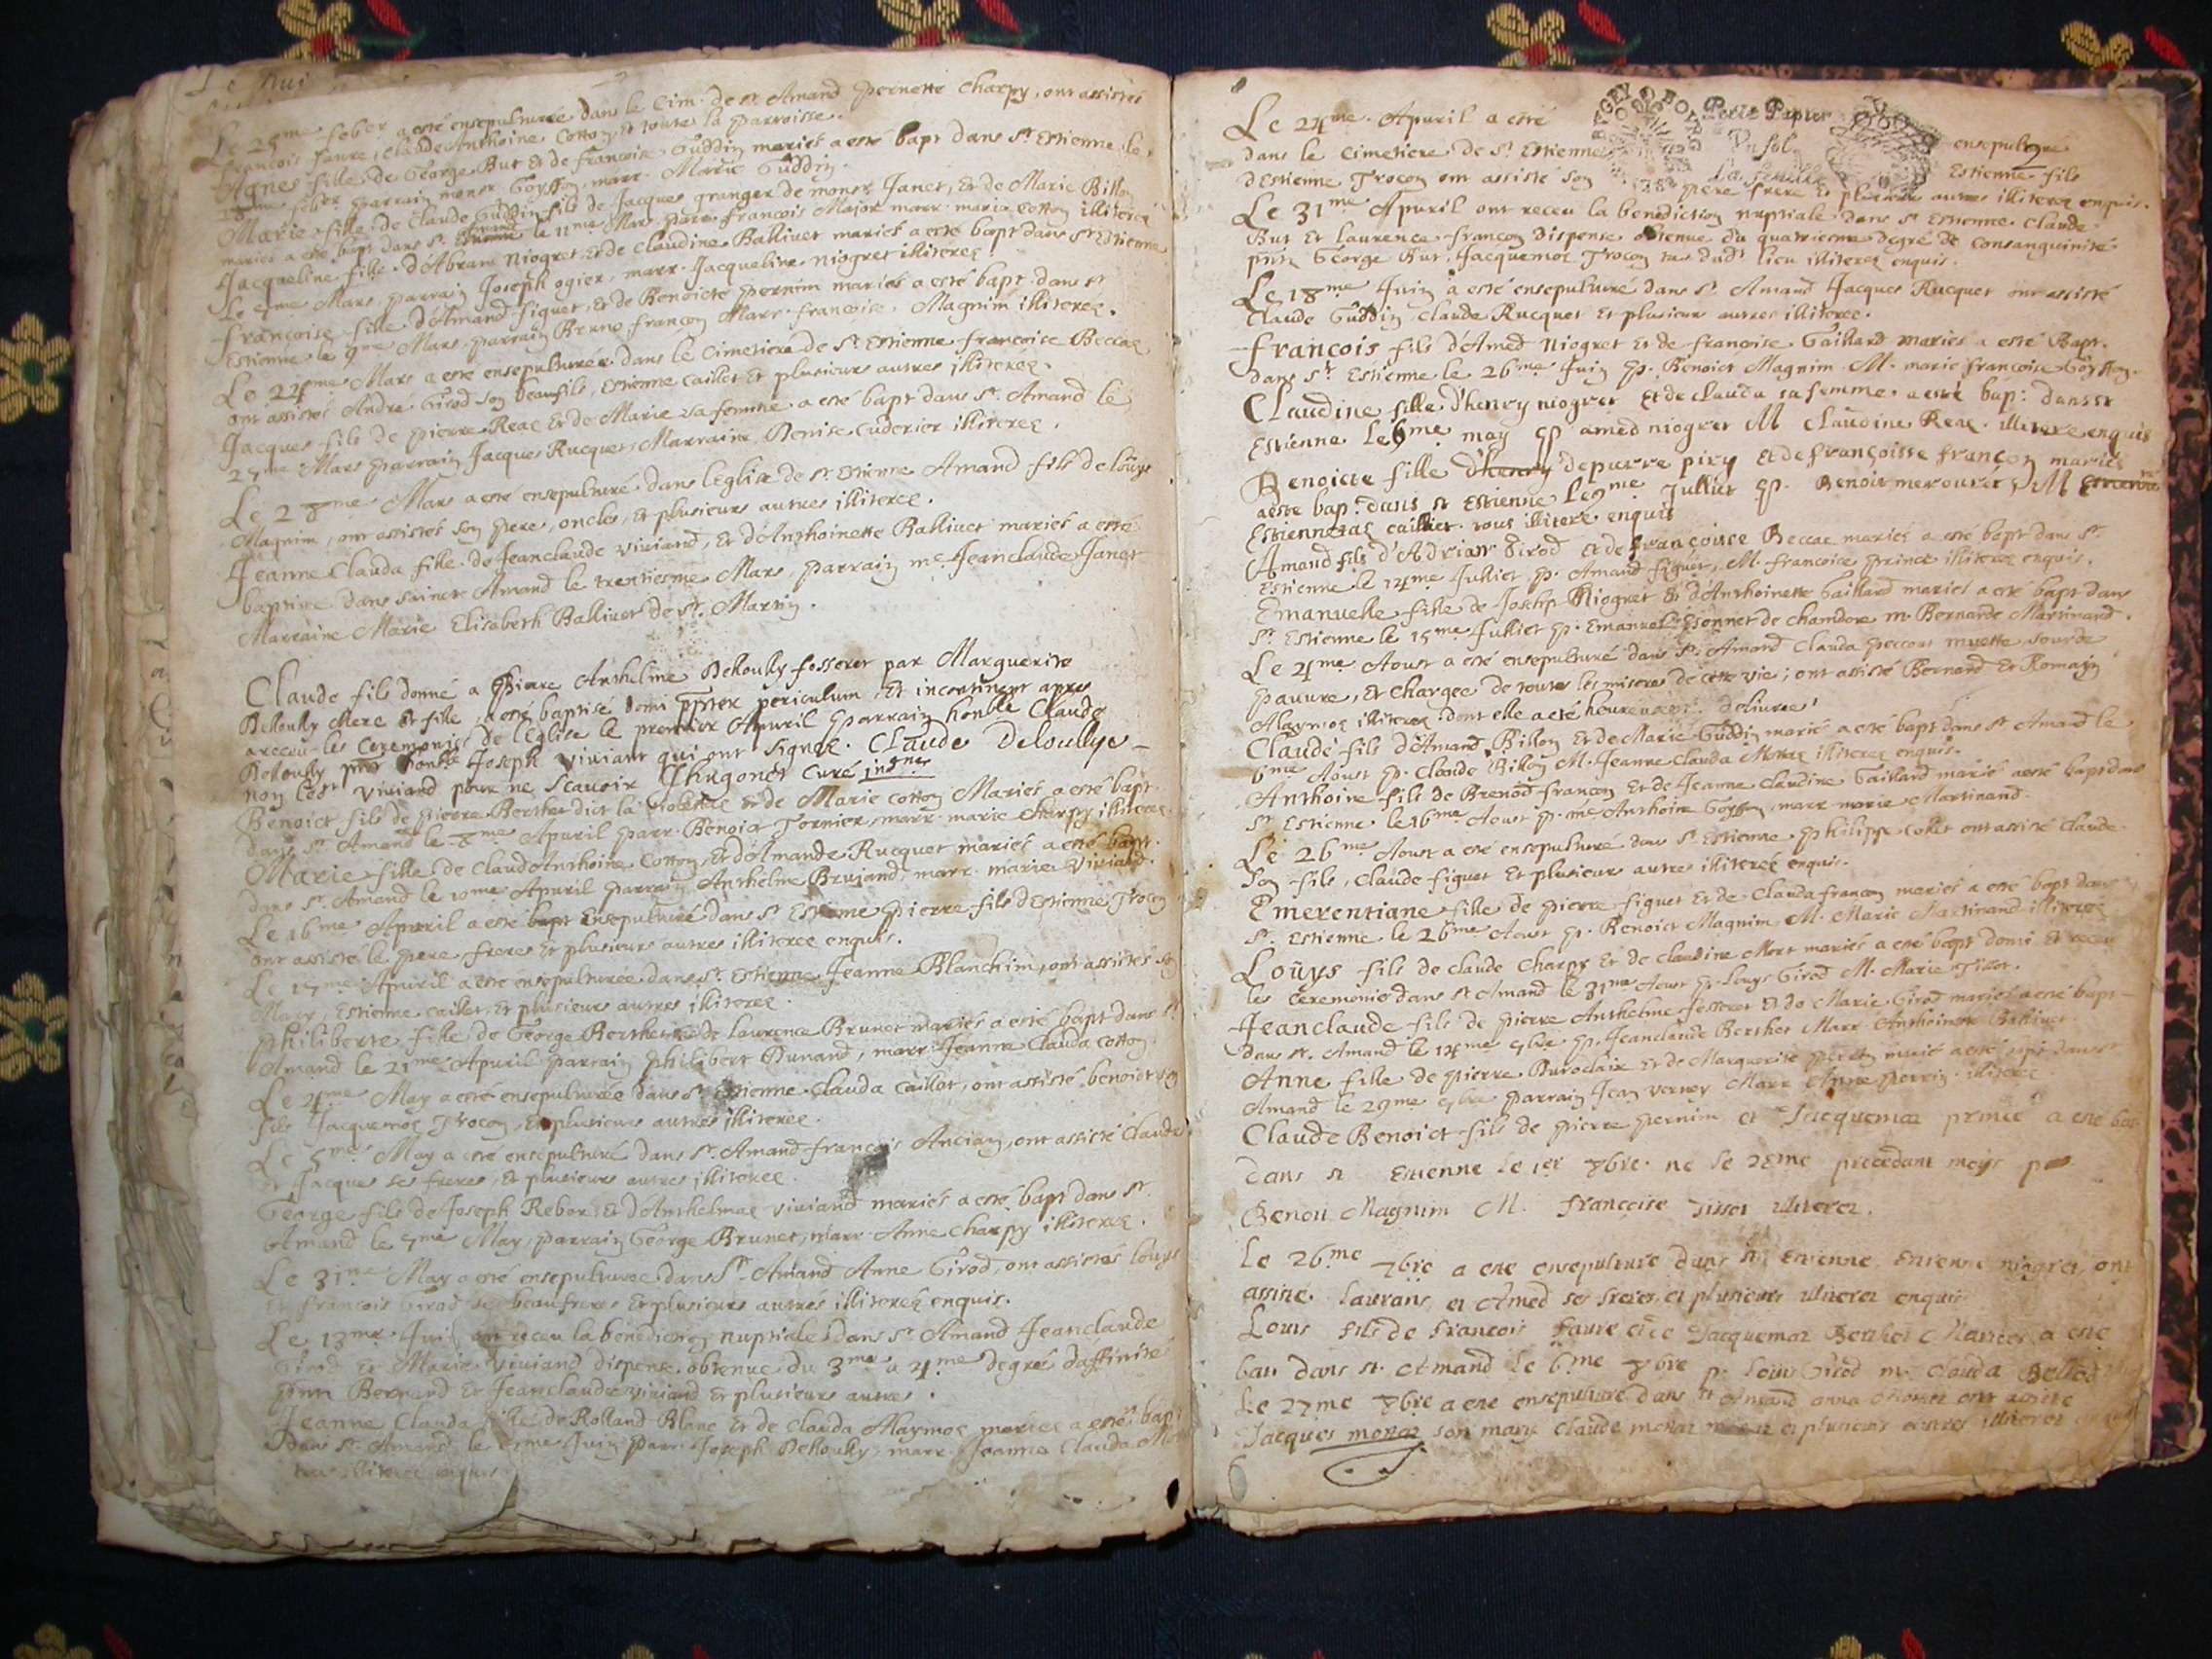 Le 25me feber a esté ensepulturée dans le Cim. de st. Amand Pernette Charpy, ont assistés
francois faure, Claude Anthoine Cotton et toute la parroisse.
Agnes fille de George But Et de francoise Guddin mariés a esté bapt dans st Estienne le
feber parrain monsr Goysson, marr. Marie Guddin.
Marie fille de Claude Guddin fils de Jacques granger de monsr Janet, Et de Marie Billon
mariés a esté bapt dans st. Amand le 11me Mars parr. francois Major marr. marie Cotton illiterez
Jacqueline fille d'Abram Niogret et de Claudine Ballivet mariés a esté bapt dans st Estienne
Le Mars, parrain Joseph ogier, marr. Jacqueline Niogret illiterez.
francoise fille d'Amand figuet, Et de Benoicte pernim mariés a esté bapt. dans st
Estienne le 9me Mars parrain Bruno francon Marr. francoise Magnim illiterez.
Le 24me Mars a esté ensepulturée dans le Cimetiere de st. Estienne francoise Beccaz
ont assistés André Girod son beaufils, Estienne Caillet et plusieurs autres illiterez.
Jacques fils de pierre Reac Et de Marie sa femme a esté bapt dans st. Amand le
25me Mars parrain Jacques Rucquet, Marraine Denise Cuderier illiterez.
Le 28me Mars a esté ensepulturé dans l'Eglise de st. Estienne Amand fils de louys
Magnim, ont assistés son pere, oncles, et plusieurs autres illiterez.
Jeanne Clauda fille de Jeanclaude viviand, Et d'Anthoinette Ballivet mariés a esté
baptisee dans Sainct Amand le trentiesme Mars, parrain me. Jeanclaude Janet
Marraine Marie Elisabeth Ballivet de st. Martin.
Claude fils donné a Pierre Anthelme Delloully fosseret par Marguerite
Delloully Mere Et fille, a esté baptise domi ppter periculum, Et incontinent apres
a receu les Ceremonies de l'Eglise le premier Apuril Parrain honble Claude
Delloully pnt honble Joseph viviant qui ont signez. Claude Deloullye
non led viviand pour ne scavoir Jhugonet curé indgne
Benoict fils de pierre Berthet dict la Et de Marie Cotton Mariés a esté bapt.
dans st. Amand le 8me Apuril parr. Benoict Tornier, marr. marie Charpy illiterez.
Marie fille de Claud'Anthoine Cotton, Et d'Amande Rucquet mariés a esté bapt.
dans st. Amand le 10me Apuril parrain Anthelme Brujand, marr. marie viviand.
Le 16me Apuril a esté bapt Ensepulturé dans st Estienne pierre fils d'Estienne Trocon
ont assisté le pere, freres et plusieurs autres illiterez enquis.
Le 17me Apuril a esté ensepulturée dans st. Estienne Jeanne Blanchim, ont assistés son
Mary, Estienne Caillet, et plusieurs autres illiterez.
philiberte fille de George Berthet et de laurence Brunet mariés a esté bapt dans st
Amand le 21me Apuril parrain philibert Dunand, marr. Jeanne Clauda Cotton
Le 4me May a esté ensepulturée dans st Estienne Clauda Caillot, ont assisté benoict son
fils Jacquemoz Trocon, et plusieurs autres illiterez.
Le 5me May a esté ensepulturé dans st. Amand francois Ancian, ont assisté Claude
et Jacques ses freres, Et plusieurs autres illiterez.
George fils de Joseph Rebor, Et d'Anthelmaz viviand mariés a esté bapt dans st.
Amand le 7me May, parrain George Brunet, marr. Anne Charpy illiterez.
Le 31me May a esté ensepulturee dans st. Amand Anne Girod, ont assistés louys
Et francois Girod ses beaufreres Et plusieurs autres illiterez enquis.
Le 13me Juin ont receu la benediction nuptiale dans st Amand Jeanclaude
Girod Et Marie Viviand dispense obtenue du 3me a 4me degré daffinité
pnts Bernard Et Jeanclaude viviand Et plusieurs autres.
Jeanne Clauda fille de Rolland Blanc Et de Clauda Alaymoz mariez a esté bap
dans st. Amand le Juin parr. Joseph Delloully, marr. Jeanne Clauda
illiterez enquis
Le 24me Apuril a esté ensepulture
dans le Cimetiere de st. Estienne Estienne fils
d'Estienne Trocon ont assisté son pere frere Et plusieurs autres illiterez enquis.
Petit Papier
Un sol
La feuille
Le 31me Apuril ont receu la benediction nuptiale dans st Estienne Claude
But Et laurence francon dispense obtenue du quatriesme degré de Consanguinité
pnts George But, Jacquemoz Trocon dudt lieu illiterez enquis.
Le 18me Juin a esté ensepulturé dans st Amand Jacques Rucquet ont assisté
Claude Guddin Claude Rucquet Et plusieurs autres illiterez.
francois fils d'Amed Niogret Et de francoise Gaillard mariés a esté Bapt.
dans st Estienne le 26me Juin p. Benoict Magnim M. marie francoise Goysson.
Claudine fille d'henry niogret et de clauda sa femme a esté bap: dans st
Estienne le 9me may p amed niogret M Claudine Reac illitere enquis
Benoicte fille d'henry de pierre piry et de françoise françon mariés
a este bap: dans st Estienne le 9me Julliet p. Benoit merouret M Estienne
Estiennetaz cailliet tous illitere enquis
Amand fils d'Adrian Girod et de françoise Beccac mariés a esté bapt dans st
Estienne le 14me Julliet p. Amand figuet, M. francoise prince illiterez enquis.
Emanuelle fille de Joseph Niogret & d'Anthoinette Gaillard mariés a esté bapt dans
st Estienne le 15me Julliet p. Emanuel de chandore m. Bernarde Martinand.
Le 4me Aoust a esté ensepulturé dans st. Amand Clauda peccout muette, sourde
pauvre, Et chargee de toutes les miseres de cette vie; ont assisté Bernard Et Romain
Alaymoz illiterez dont elle a eté heureusemt. delivree
Claude fils d'Amand Billon Et de Marie Guddin mariés a esté bapt dans st Amand le
6me Aoust p. Claude Billon M. Jeanne Clauda Mottez illiterez enquis.
Anthoine fils de Brenod francon Et de Jeanne Claudine Gaillard mariés a esté bapt dans
st Estienne le 16me Aoust p. me Anthoine Goysson, marr marie Martinand.
Le 26me Aoust a esté ensepulturé dans st Estienne philippe Collet ont assisté Claude
son fils, Claude figuet Et plusieurs autres illiterez enquis.
Emerentiane fille de pierre figuet Et de Clauda francon mariés a esté bapt dans
st. Estienne le 26me Aoust p. Benoict Magnim M. Marie Martinand illiterez
Loüys fils de Claude Charpy Et de Claudine Mort mariés a esté bapt domi Et receu
les ceremonies dans st Amand le 31me Aoust p. Louys Girod M. Marie Tillot.
Jeanclaude fils de pierre Anthelme fesseret Et de Marie Girod mariés a esté bapt
dans st. Amand le 14me 7bre p. Jeanclaude Berthet Marr. Anthoinette Ballivet.
Anne fille de pierre Buroclaix Et de Marguerite perrin mariés a esté bapt dans
Amand le 29me 7bre parrain Jean verney Marr Anne perrin illiterez
Claude Benoict fils de pierre pernim et Jacquemaz prince a esté bap
dans st Estienne le 1er 8bre ne le 28me precedant moys p
Benoit Magnim M. francoise tissot illiterez.
Le 26me 7bre a ete ensepulture dans st Etienne Etienne niogret, ont
assiste laurans et Amed ses freres et plusieurs illiterez enquis
Louis fils de francois faure et de Jacquemaz Berthet Mariez a este
bati dans st. Amand le 6me 8bre p. louis Girod m. clauda Bellod
Le 27me 8bre a ete ensepulture dans st Amand anna ont assiste
Jacques mottaz son mary Claude mottaz et plusieurs autres illiterez